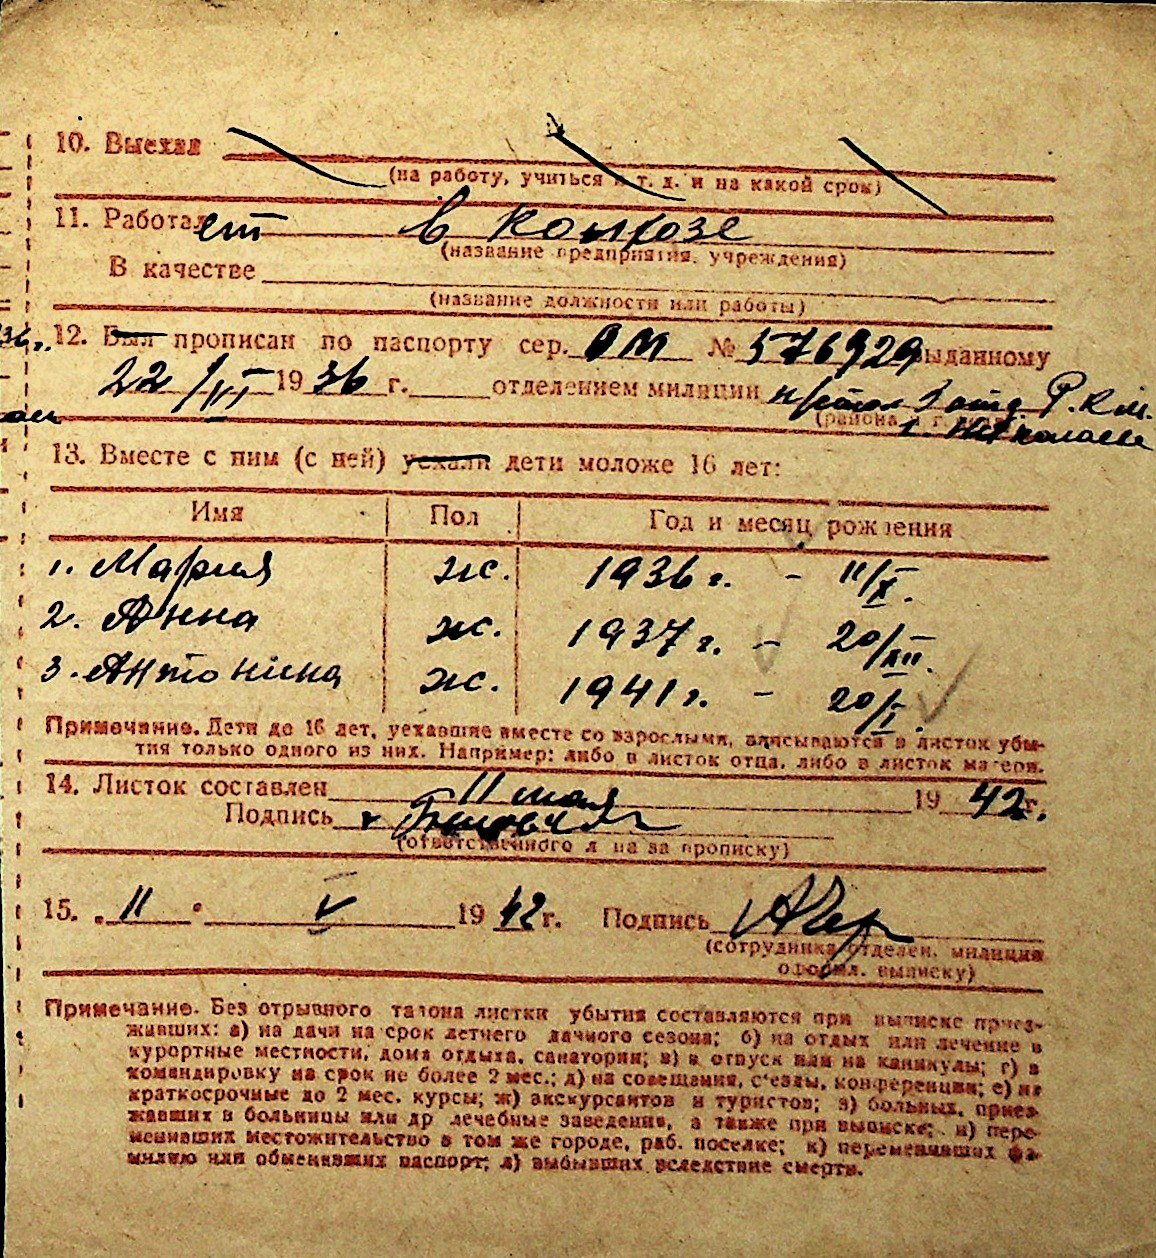 10. Выехал
(на работу, учиться и т. д. и на какой срок)
11. Работает в колхозе
(название предприятия, учреждения)
В качестве
(название должности или работы)
12. Был прописан по паспорту сер. ОМ № 576929 выданному
22/VI 1936 г. отделением милиции 3 отд Р.К.М.
(района
13. Вместе с ним (с ней) уехали дети моложе 16 лет:
Имя Пол Год и месяц рождения
1. Мария ж. 1936 г. - 11/X.
2. Анна ж. 1937 г. - 20/XII.
3. Антонина ж. 1941 г. - 20/I.
Примечание. Дети до 16 лет, уехавшие вместе со взрослыми, вписываются в листок убы-
тия только одного из них. Например: либо в листок отца, либо в листок матери.
14. Листок составлен 11 мая 1942 г.
Подпись
(ответственного л на за прописку)
15. 11 V 1942 г. Подпись
(сотрудника отделен. милиции
оформл. выписку)
Примечание. Без отрывного талона листки убытия составляются при выписке приез-
жавших: а) на дачи на срок летнего дачного сезона; б) на отдых или лечение в
курортные местности, дома отдыха, санатории; в) в отпуск или на каникулы; г) в
командировку на срок не более 2 мес.; д) на совещания, с'езды, конференции; е) на
краткосрочные до 2 мес. курсы; ж) экскурсантов и туристов; з) больных, приез-
жавших в больницы или др лечебные заведения, а также при выписке; и) пере-
менивших местожительство в том же городе, раб. поселке; к) переменивших фа-
милию или обменивших паспорт; л) выбывших вследствие смерти.